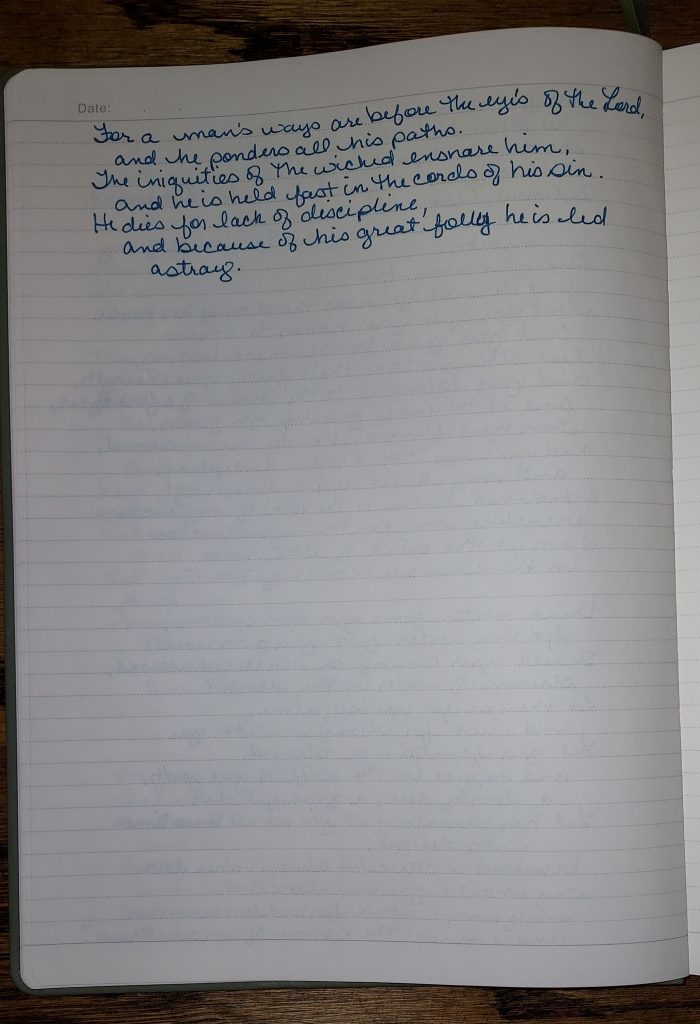 Date:
For a man's ways are before the eyes of the Lord,
and he ponders all his paths.
The iniquities of the wicked ensnare him,
and he is held fast in the cords of his sin.
He dies for lack of discipline,
and because of his great folly he is led
astray.